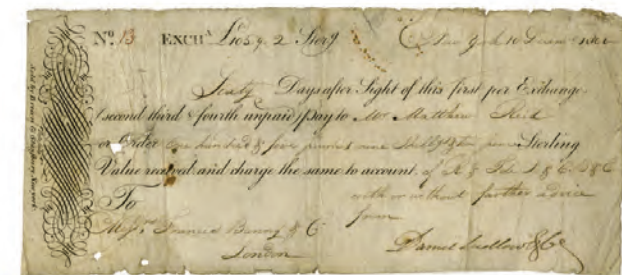 No. 13 EXCHA £105 9. 2 Sterg New York 10
Sixty Days after Sight of this first per Exchange
(second third & fourth unpaid) pay to Mr Matthew Reid
or Order One hundred & five pounds nine Shillgs & pence Sterling
Value received and charge the same to account of
To with or without further advice
from
Messrs Francis & Co
London Daniel Ludlow & Co